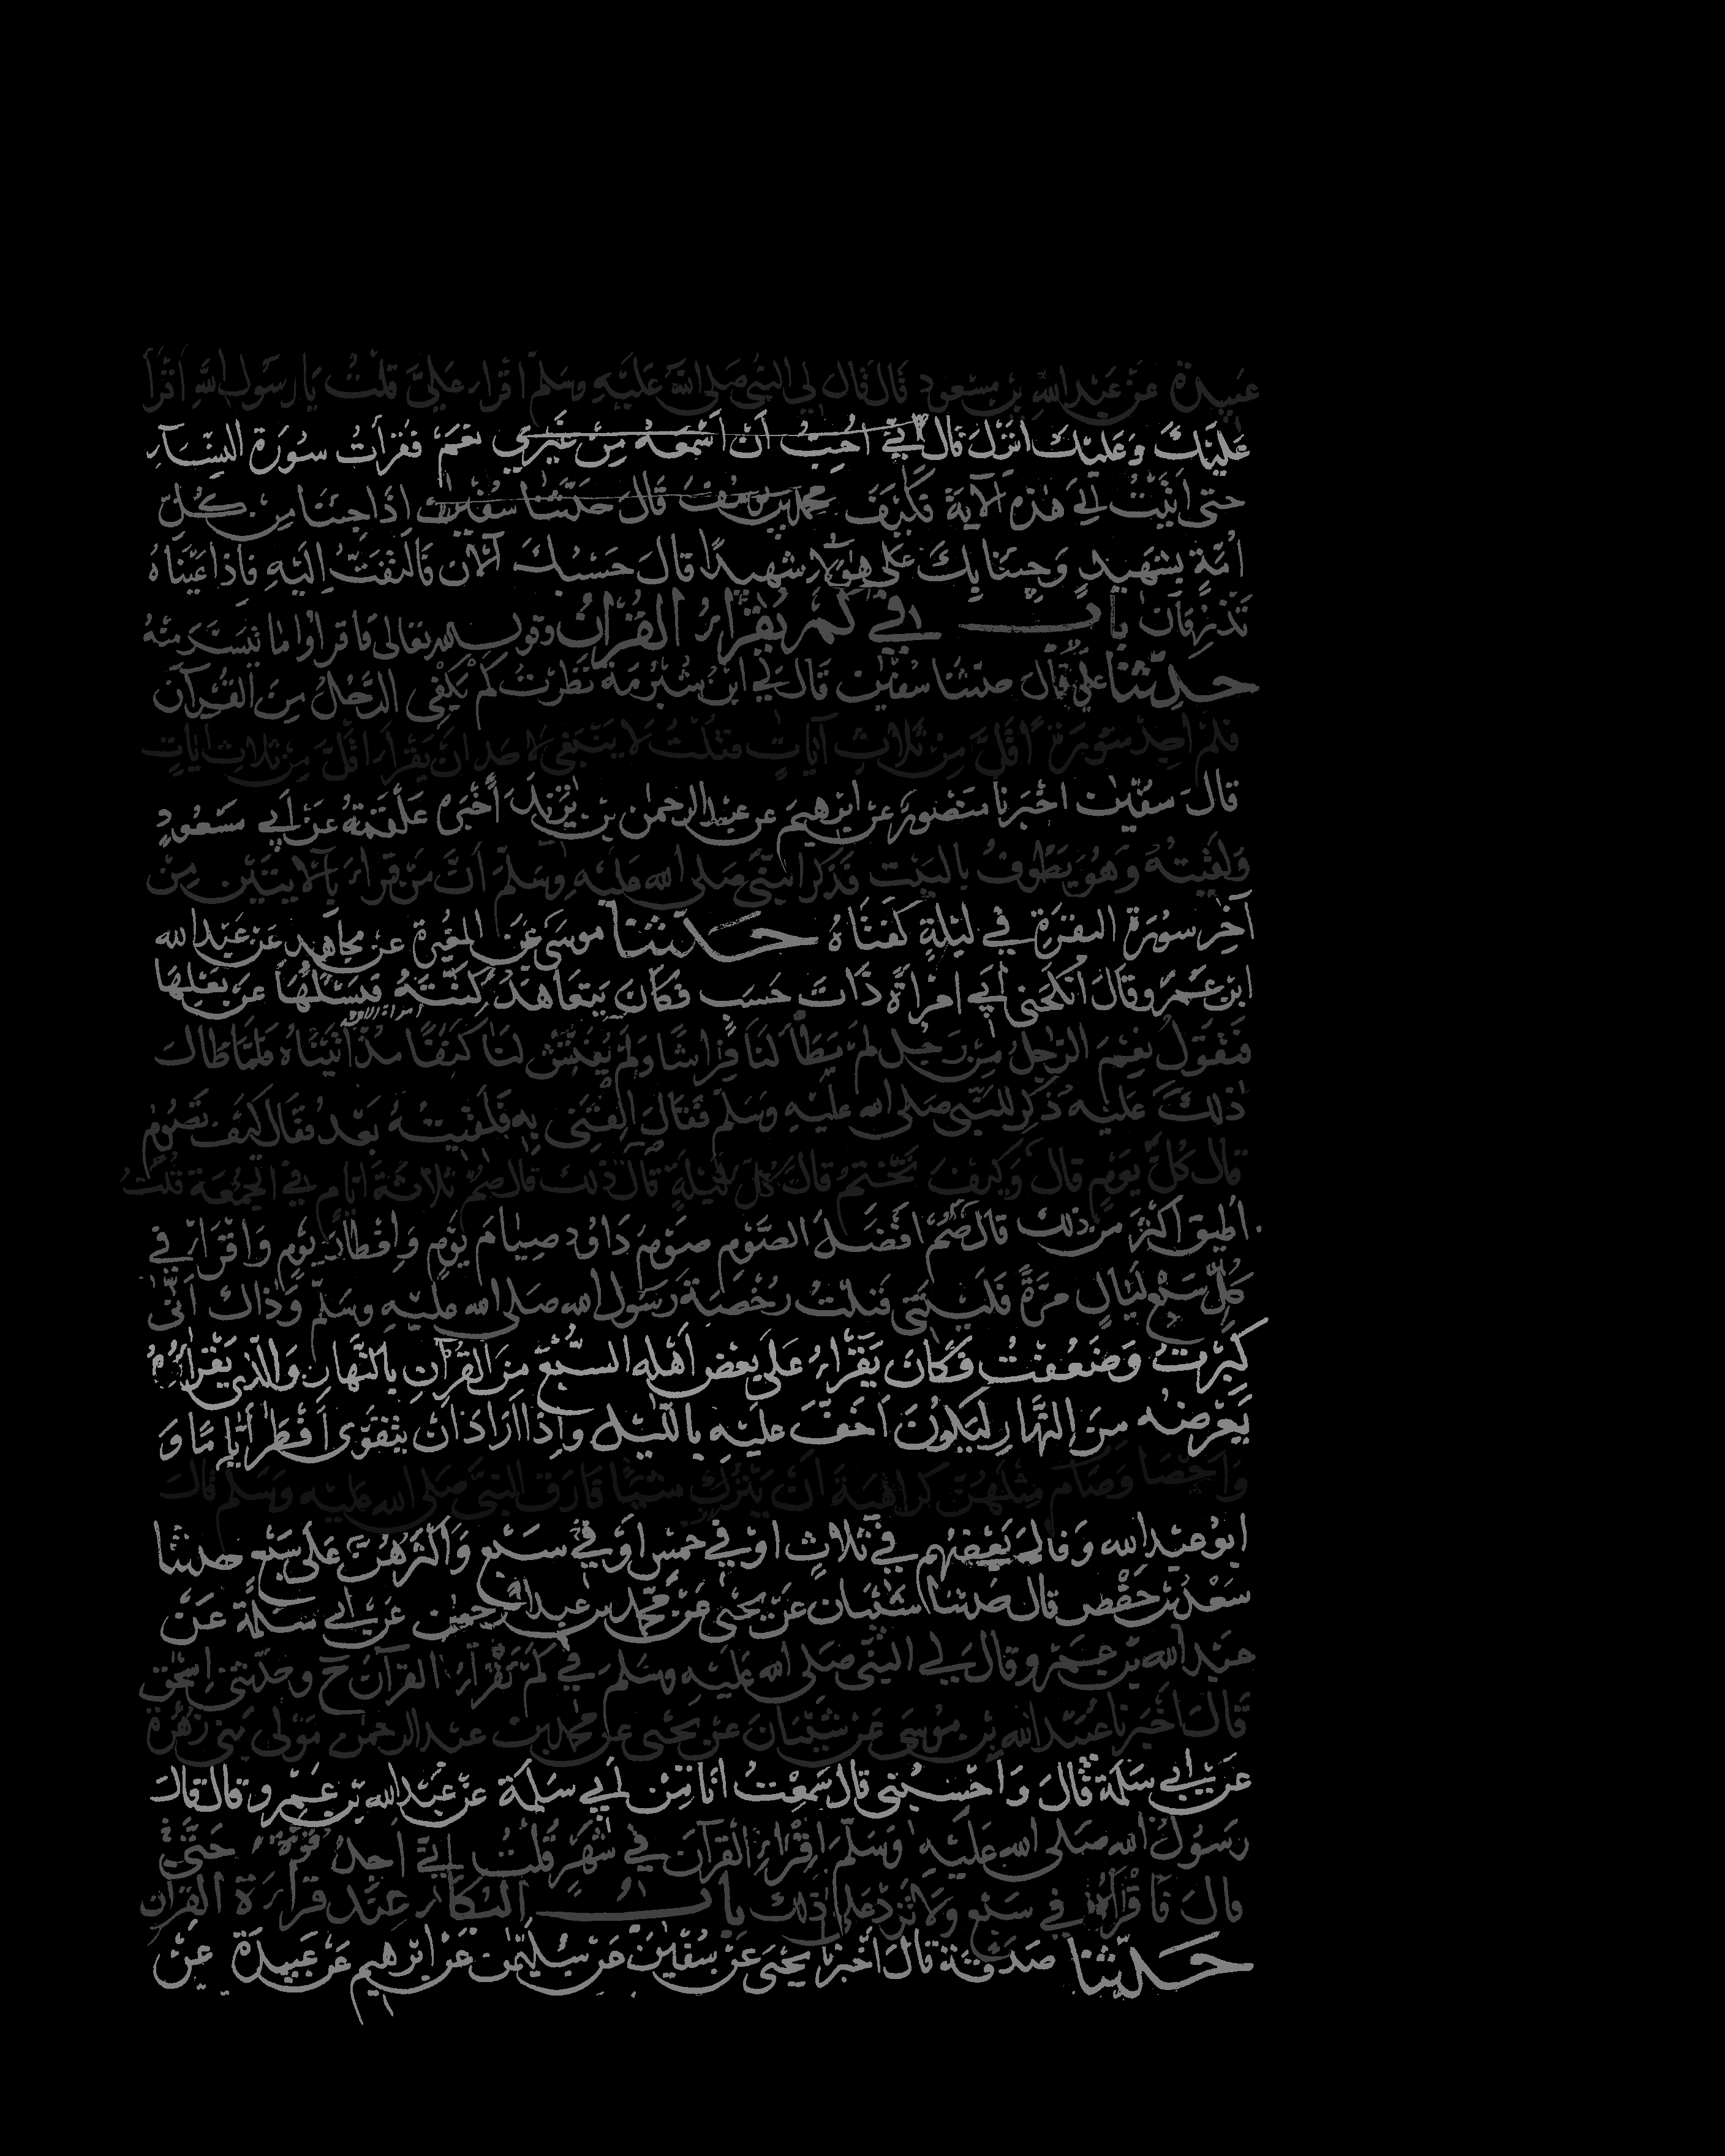 عبيدة عن عبد الله بن مسعود قال قال لي النبي صلى الله عليه وسلم اقرا علي قلت يا رسول الله اقرأ
عليك وعليك انزل قال اني احب ان اسمعه من غيري نعم فقرأت سورة النساء
حتى اتيت الى هذه الآية فكيف محمد بن يوسف قال حدثنا سفين اذا جئنا من كل
امة بشهيد وجئنا بك على هؤلاء شهيدا قال حسبك الآن فالتفت اليه فاذا عيناه
تذرفان باب في كم يقراء القران وقول الله تعالى فاقراوا ما تيسر منه
حدثنا علي قال حدثنا سفين قال لي ابن شبرمة نظرت كم يكفي الرجل من القرآن
فلم اجد سورة اقل من ثلاث آيات فقلت لا ينبغي لاحد ان يقرأ اقل من ثلاث آيات
قال سفين اخبرنا منصور عن ابرهيم عن عبد الرحمن بن يزيد أخبره علقمة عن أبي مسعود
ولقيته وهو يطوف بالبيت فذكر النبي صلى الله عليه وسلم ان من قراء بالآيتين من
آخر سورة البقرة في ليلة كفتاه حدثنا موسى عن المغيرة عن مجاهد عن عبد الله
ابن عمرو قال انكحني أبي امرأة ذات حسب فكان يتعاهد كنته فيسئلها عن بعلها
امرأة الابن
فتقول نعم الرجل من رجل لم يطأ لنا فراشا ولم يفتش لنا كنفا مذ اتيناه فلما طال
ذلك عليه ذكر للنبي صلى الله عليه وسلم فقال القني به فلقيته بعد فقال كيف تصوم
قال كل يوم قال وكيف تختم قال كل ليلة قال ذلك قال صم ثلاثة ايام في الجمعة قلت
اطيق اكثر من ذلك قال صم افضل الصوم صوم داود صيام يوم وافطار يوم واقرأ في
كل سبع ليال مرة فليتني قبلت رخصة رسول الله صلى الله عليه وسلم وذاك اني
كبرت وضعفت فكان يقراء على بعض أهله السبع من القرآن بالنهار والذي يقراه
يعرضه من النهار ليكون اخف عليه بالليل واذا اراد ان يتقوى افطر أياما و
واحصا وصام مثلهن كراهية ان يترك شيئا فارق النبي صلى الله عليه وسلم قال
ابو عبد الله وقال بعضهم في ثلاث او في خمس او في سبع واكثرهن على سبع حدثنا
سعد بن حفص قال حدثنا شيبان عن يحيى عن محمد بن عبد الرحمن عن ابي سلمة عن
عبد الله بن عمرو قال لي النبي صلى الله عليه وسلم في كم تقرأ القرآن ح وحدثني اسحق
قال اخبرنا عبيد الله بن موسى عن شيبان عن يحيى عن محمد بن عبد الرحمن مولى بني زهرة
عن ابي سلمة قال واحسبني قال سمعت انا من أبي سلمة عن عبد الله بن عمرو قال قال
رسول الله صلى الله عليه وسلم اقرإ القرآن في شهر قلت اني اجد قوة حتى
قال فاقرأه في سبع ولا تزد على ذلك باب البكاء عند قراءة القران
حدثنا صدقة قال اخبرنا يحيى عن سفين عن سليمن عن ابرهيم عن عبيدة عن